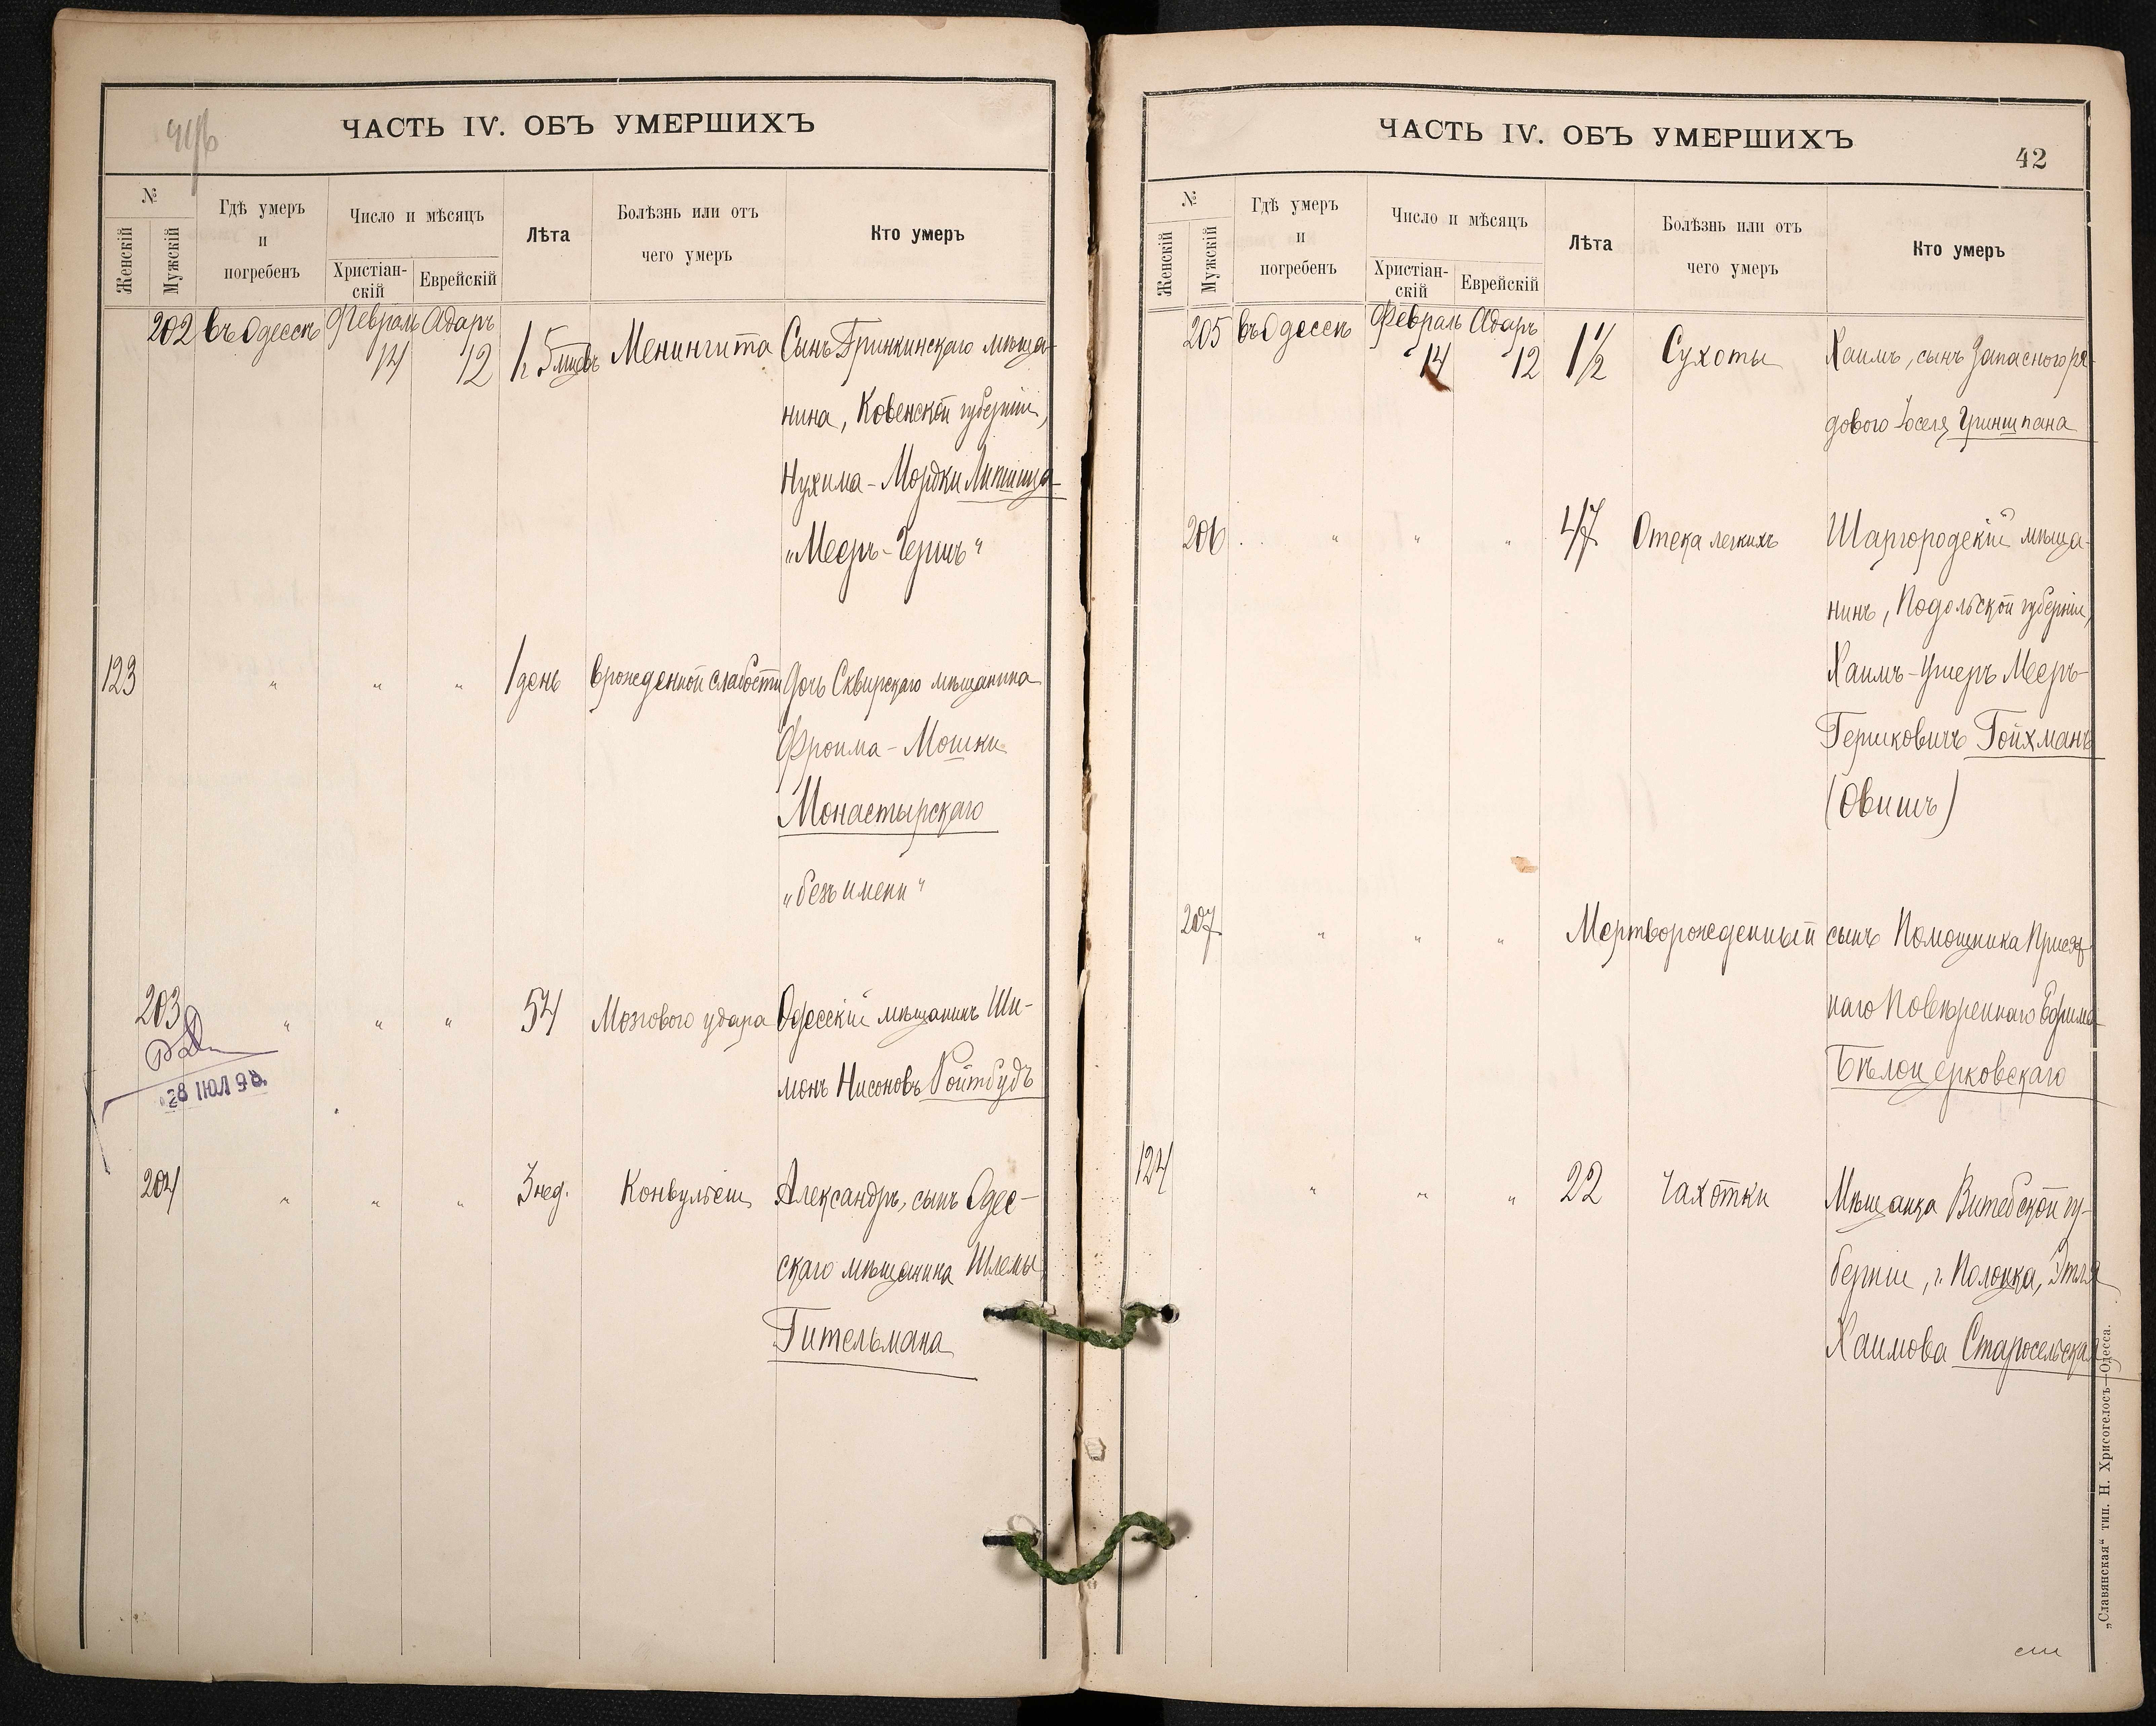 ЧАСТЬ IV. ОБЪ УМЕРШИХЪ
№
Женскій
Мужскій
Гдѣ умеръ
и
погребенъ
Число и мѣсяцъ
Христіан-
скій
Еврейскій
Лѣта
Болѣзнь или отъ
чего умеръ
Кто умеръ
202 въ Одессѣ Февраль Адаръ
14 12 Менингита Сынъ Гринкинскаго мѣща-
нина, Ковенской губерніи,
Нухима-Мордки Липшица
„Мееръ-Гершъ“
123 „ „ „ 1 день врожденной слабости Дочь Сквирскаго мѣщанина
Фроима-Мошки
Монастырскаго
„безъ имени“
203 „ „ „ 54 Мозгового удара Одесскій мѣщанинъ Ши-
монъ Нисоновъ Ройтбудъ
28 ІЮЛ 98.
204 „ „ „ 3 нед. Конвульсіи Александръ, сынъ Одес-
скаго мѣщанина Шлемы
Гительмана
ЧАСТЬ IV. ОБЪ УМЕРШИХЪ
42
№
Женскій
Мужскій
Гдѣ умеръ
и
погребенъ
Число и мѣсяцъ
Христіан-
скій
Еврейскій
Лѣта
Болѣзнь или отъ
чего умеръ
Кто умеръ
205 въ Одессѣ Февраль Адаръ
14 12 1½ Сухоты Хаимъ, сынъ Запасного ря-
дового Іоселя Гриншпана
206 „ „ „ 47 Отека легкихъ Шаргородскій мѣща-
нинъ, Подольской губерніи,
Хаимъ-Ушеръ Мееръ-
Гершковичъ Гойхманъ
(Овишъ)
207 „ „ „ Мертворожденный сынъ Помощника Присяж-
наго Повѣреннаго Ефима
Бѣлоцерковскаго
124 „ „ „ 22 Чахотки Мѣщанка Витебской гу-
берніи, г. Полоцка, Этля
Хаимова Старосельская
„Славянская“ тип. Н. Хрисогелосъ—Одесса.